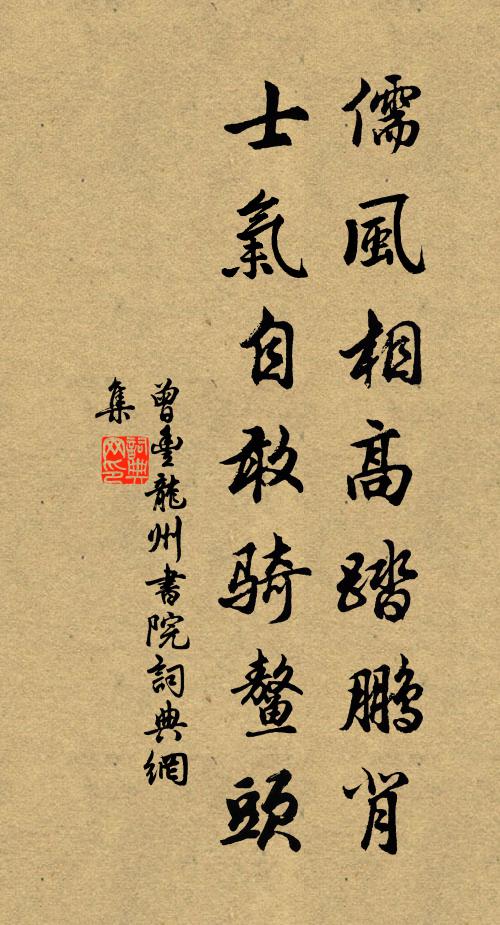 儒風相高踏鵬背
士氣自敢騎鰲頭
曾豐龍州書院詞典網
集
詞典
网印